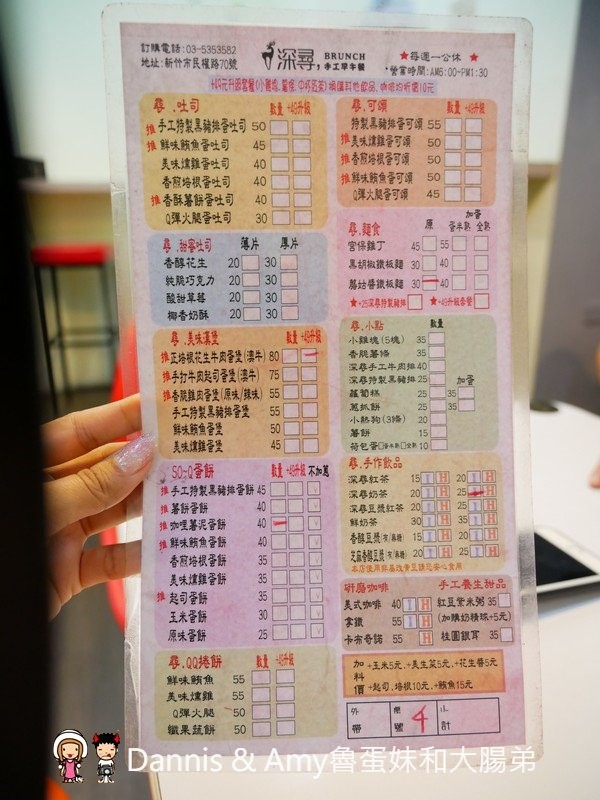 訂購電話:03-5353582
地址:新竹市民權路70號
深尋, BRUNCH
手工早午餐
★每週一公休★
*營業時間:AM6:00-PM1:30
尋.吐司 數量 +49升級
推 手工特製黑豬排蛋吐司 50
推 鮮味鮪魚蛋吐司 45
美味燻雞蛋吐司 40
香煎培根蛋吐司 40
推 香酥薯餅蛋吐司 40
Q彈火腿蛋吐司 30
尋.可頌 數量 +49升級
特製黑豬排蛋可頌 55
推 美味燻雞蛋可頌 50
推 香煎培根蛋可頌 50
推 鮮味鮪魚蛋可頌 50
Q彈火腿蛋可頌 45
尋.甜蜜吐司 薄片 厚片
香醇花生 20 30
純脆巧克力 20 30
酸甜草莓 20 30
椰香奶酥 20 30
尋.麵食 原 加蛋 蛋半熟 全熟
宮保雞丁 45 55
黑胡椒鐵板麵 30 40
蘑菇醬鐵板麵 30 40
★+25深尋特製豬排 ★+49升級套餐
尋.美味漢堡 數量 +49升級
推 正培根花生牛肉蛋堡(澳牛) 80
推 手打牛肉起司蛋堡(澳牛) 75
推 香脆雞肉蛋堡(原味/辣味) 55
手工特製黑豬排蛋堡 55
鮮味鮪魚蛋堡 50
美味燻雞蛋堡 45
尋.小點 數量
小雞塊(5塊) 35
香脆薯條 35
深尋手工牛肉排 40
深尋特製黑豬排 25 加蛋
蘿蔔糕 25 35
蔥抓餅 25 35
小熱狗(3條) 20
薯餅 15
荷包蛋 半熟 全熟 10
SO-Q蛋餅 數量 +49升級 不加蔥
推 手工特製黑豬排蛋餅 45
推 薯餅蛋餅 40
推 咖哩薯泥蛋餅 40
推 鮮味鮪魚蛋餅 40
香煎培根蛋餅 35
美味燻雞蛋餅 35
推 起司蛋餅 35
玉米蛋餅 30
原味蛋餅 25
尋.手作飲品
深尋紅茶 15 I H 20 I H
深尋奶茶 20 I H 25 I H
深尋豆漿紅茶 20 I H 25 I H
鮮奶茶 30 I H 35 I H
香醇豆漿(有/無糖) 15 I H 20 I H
芝麻香醇豆漿(有/無糖) 20 I H 25 I H
研磨咖啡
美式咖啡 40 I H
拿鐵 55 I H
卡布奇諾 55 H
手工養生甜品
紅豆紫米粥 35
(加購奶精球+5元)
桂圓銀耳 35
尋.QQ捲餅 數量 +49升級
鮮味鮪魚 55
美味燻雞 55
Q彈火腿 50
鐵果蔬餅 50
加料價 +玉米5元.+美生菜5元.+花生醬5元
+起司.培根10元.+鮪魚15元
外帶 桌號 4 小計
Dannis & Amy魯蛋妹和大腸弟